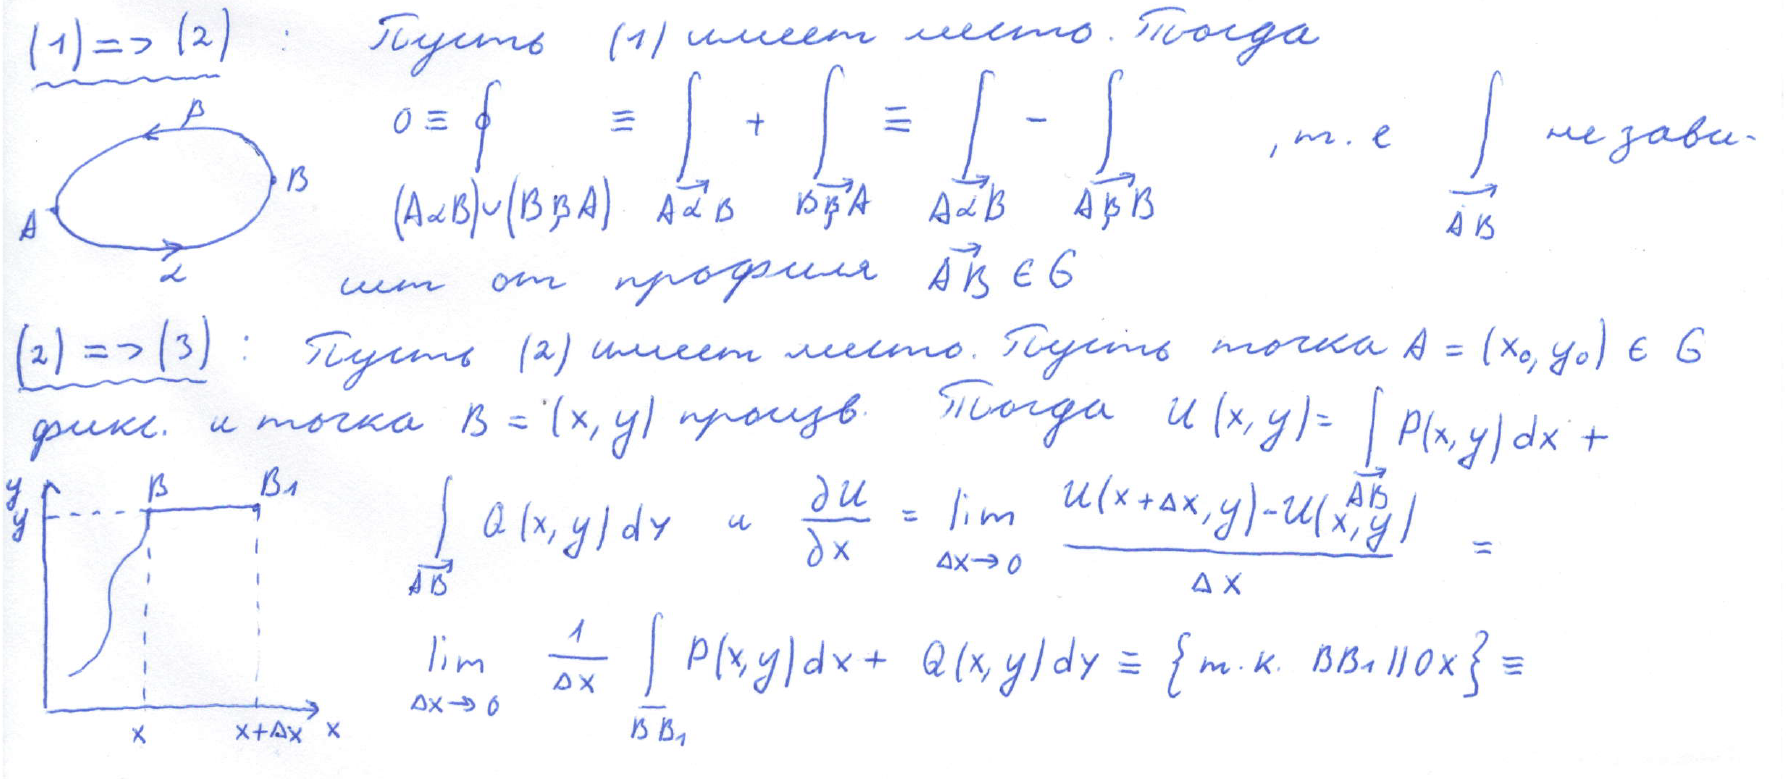 (1) => (2) : Пусть (1) имеет место. Тогда
0 ≡ ∮_{(AαB)∪(BβA)} ≡ ∫_{AαB} + ∫_{BβA} ≡ ∫_{AαB} - ∫_{AβB} , т.е ∫_{AB} не зави-
β
B
A
α
сит от профиля AB ∈ G
(2) => (3) : Пусть (2) имеет место. Пусть точка A = (x₀, y₀) ∈ G
фикс. и точка B = (x, y) произв. Тогда U(x, y) = ∫_{AB} P(x, y) dx +
∫_{AB} Q(x, y) dy и ∂U/∂x = lim_{Δx→0} (U(x+Δx, y) - U(x, y))/Δx =
lim_{Δx→0} 1/Δx ∫_{BB₁} P(x, y) dx + Q(x, y) dy ≡ {т.к. BB₁ || Ox} ≡
y
y
B B₁
x x+Δx x